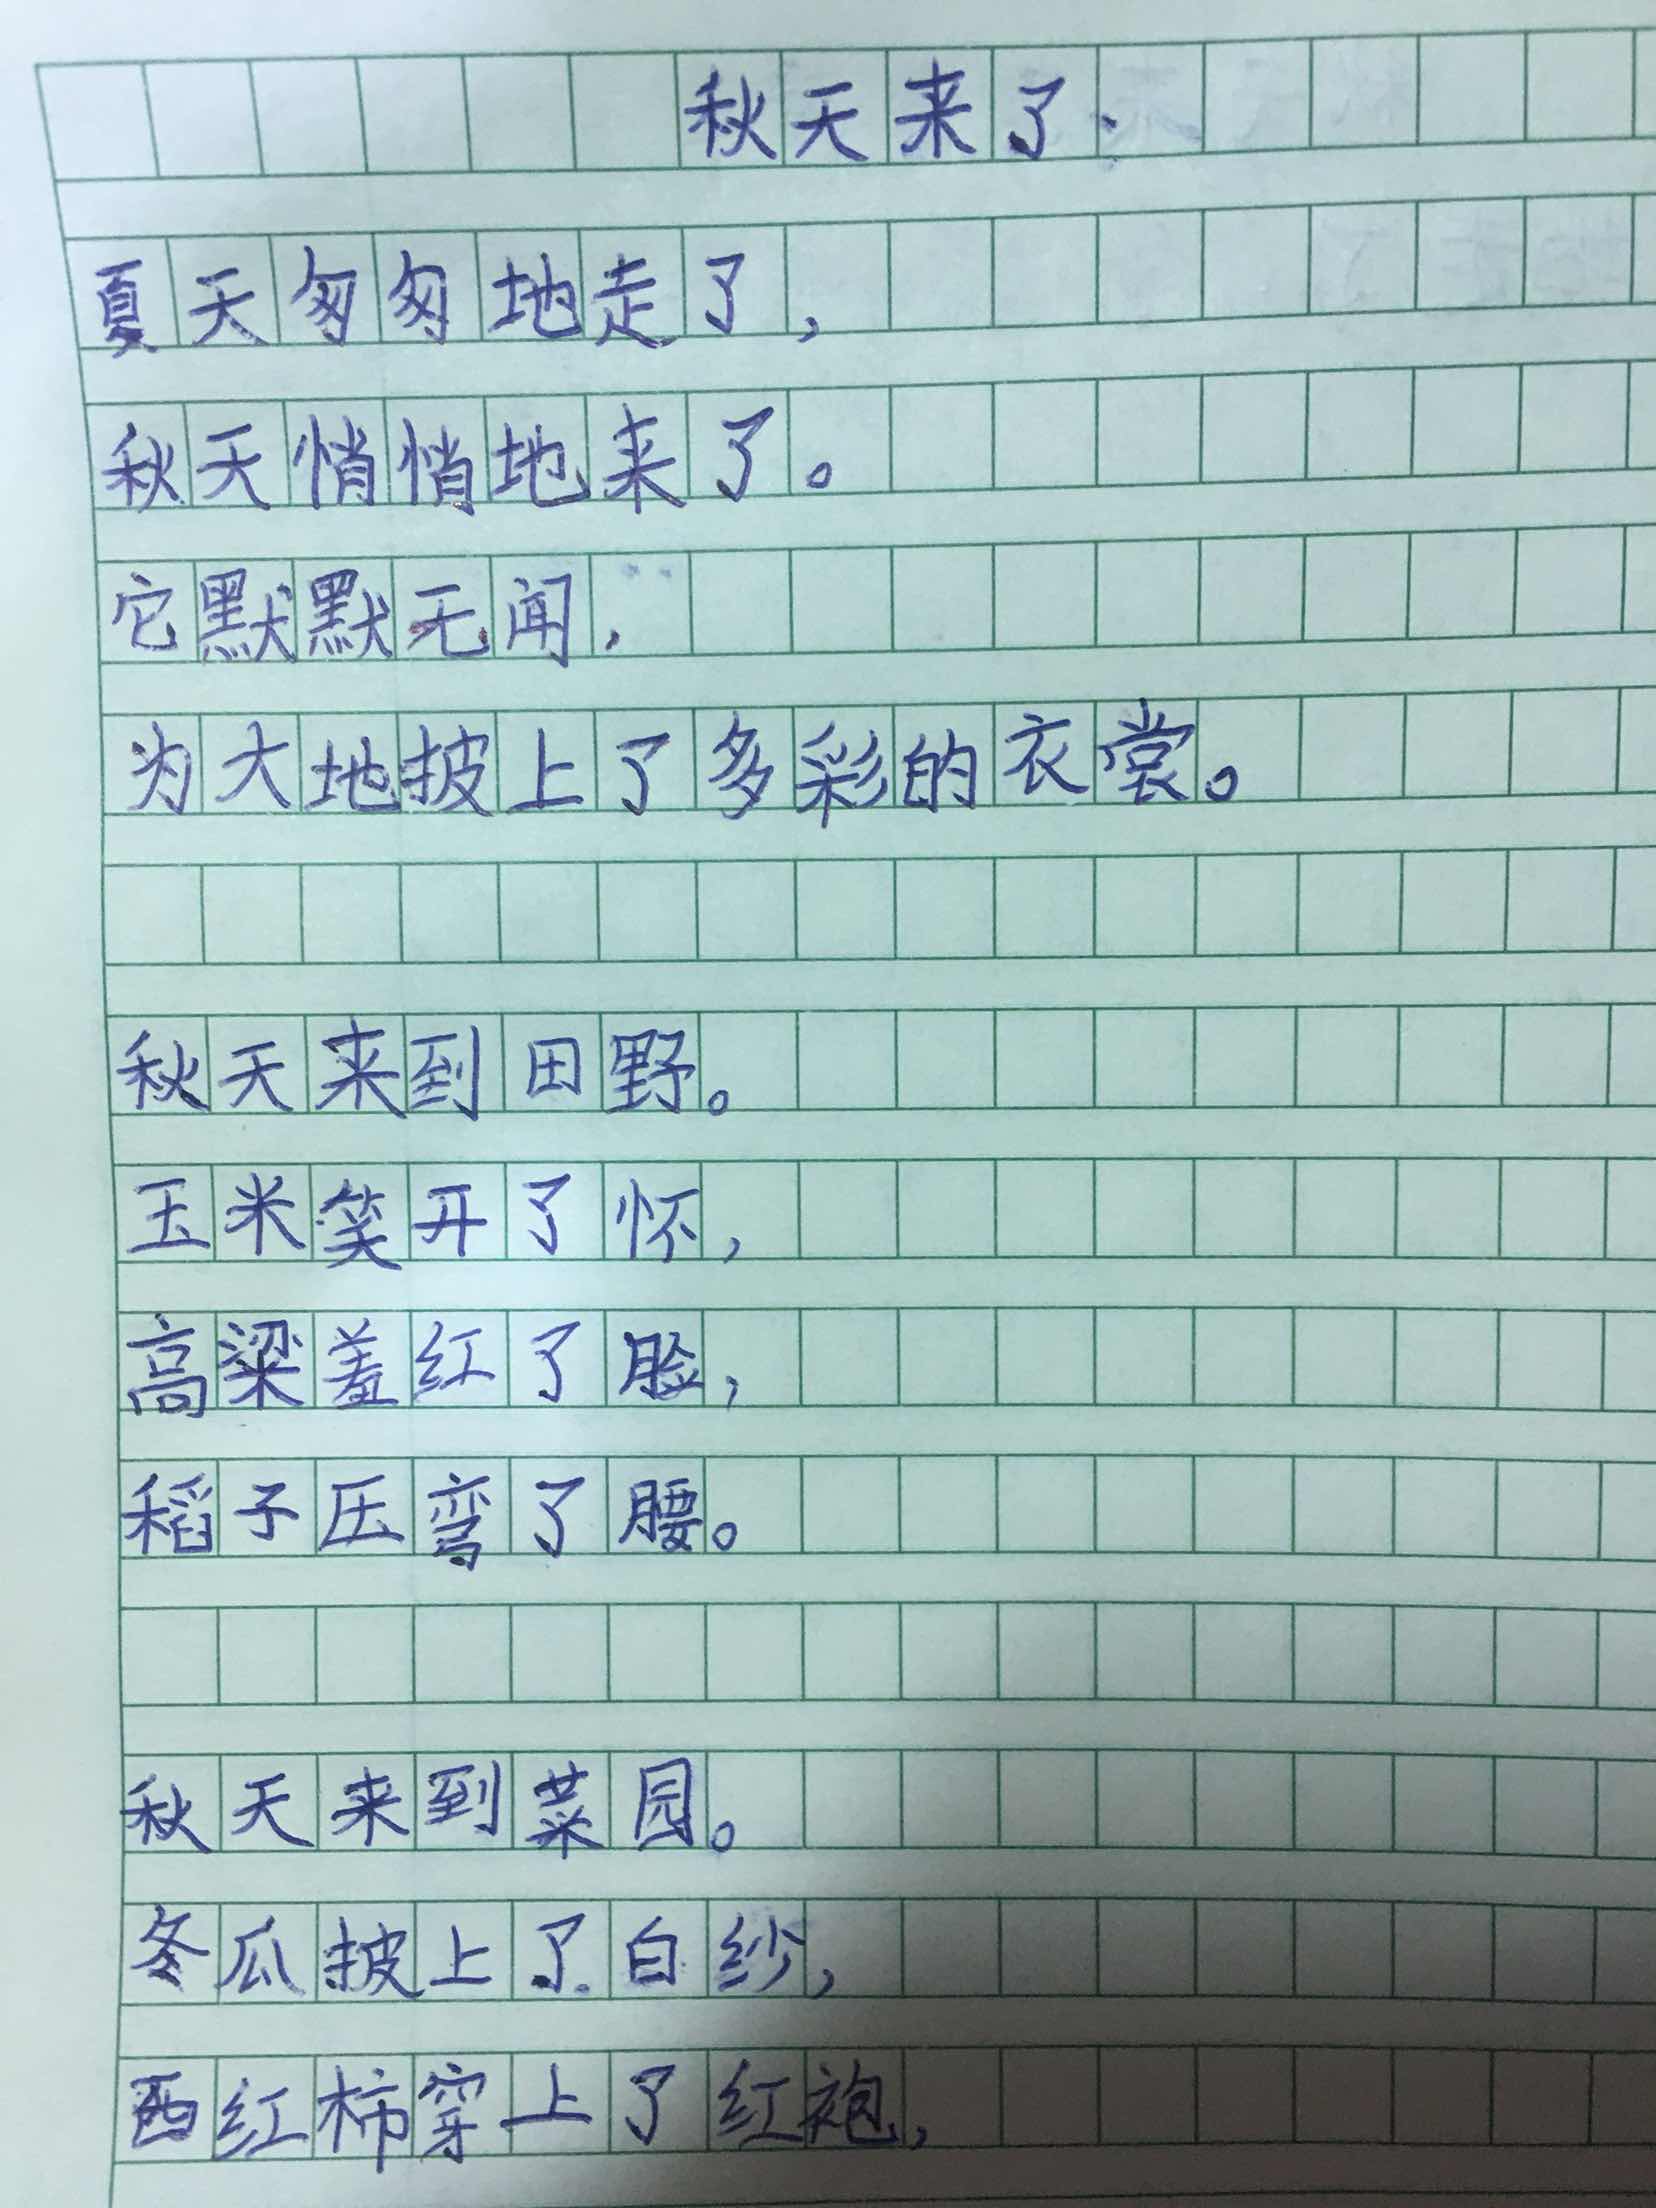 秋天来了
夏天匆匆地走了，
秋天悄悄地来了。
它默默无闻，
为大地披上了多彩的衣裳。
秋天来到田野。
玉米笑开了怀，
高粱羞红了脸，
稻子压弯了腰。
秋天来到菜园。
冬瓜披上了白纱，
西红柿穿上了红袍，